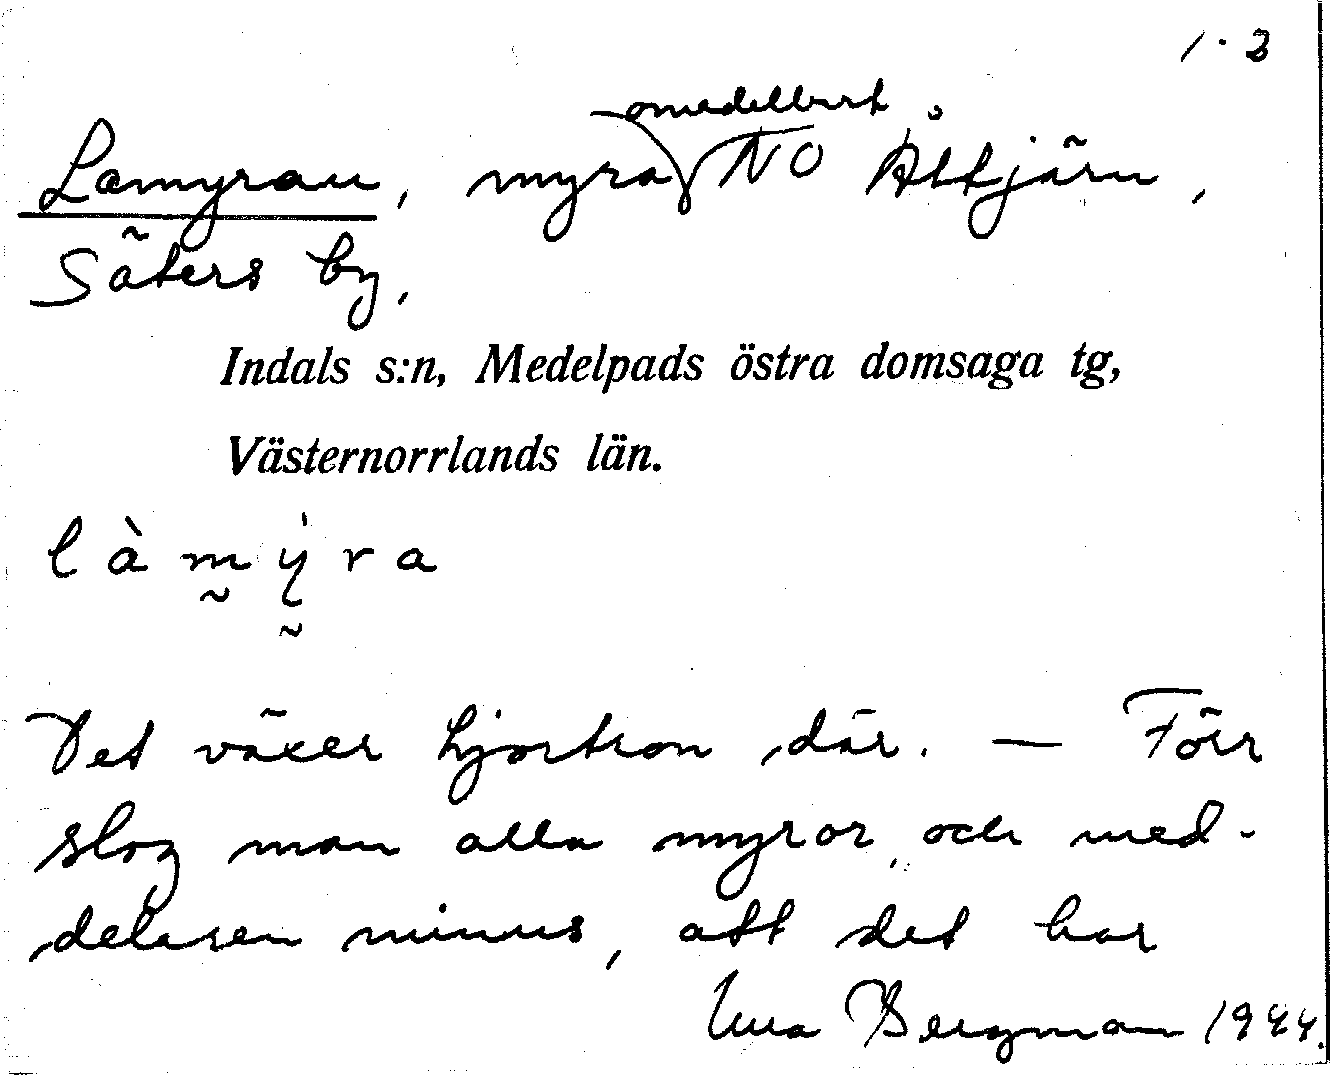 1·2
omedelbart
Lamyran, myra NO Åttjärn,
Säters by,
Indals s:n, Medelpads östra domsaga tg,
Västernorrlands län.
làmy̍ra
Det växer hjortron där. — Förr
slog man alla myror, och med-
delaren minns, att det har
Bergman 1944.